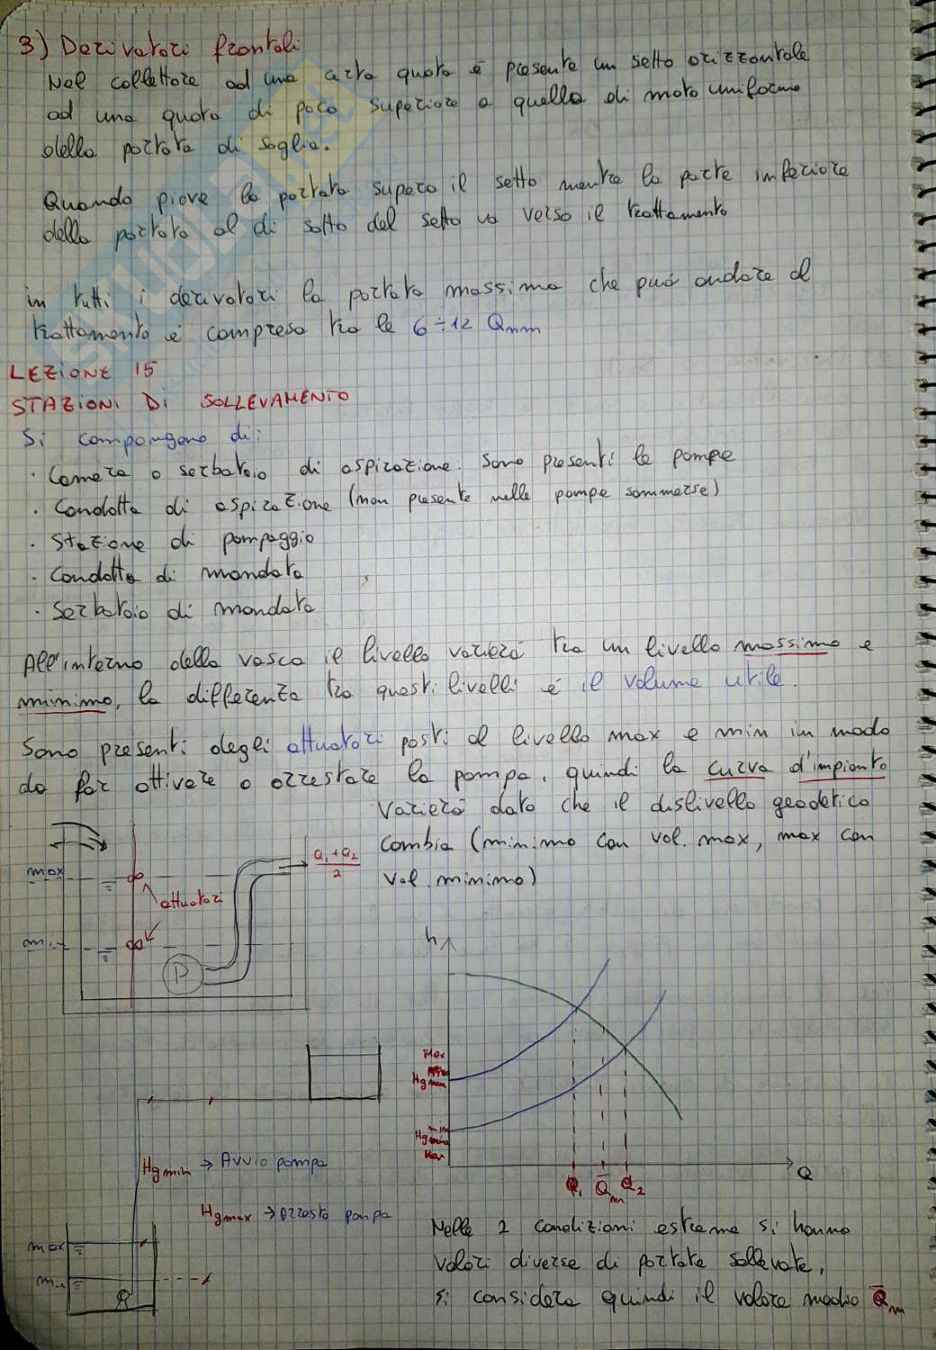 3) Derivatori frontali
Nel collettore ad una certa quota è presente un setto orizzontale
ad una quota di poco superiore a quella di moto uniforme
della portata di soglia.
Quando piove la portata supera il setto mentre la parte inferiore
della portata al di sotto del setto va verso il trattamento
in tutti i derivatori la portata massima che può andare al
trattamento è compresa tra le 6÷12 Qmm
LEZIONE 15
STAZIONI DI SOLLEVAMENTO
Si compongono di:
· Camera o serbatoio di aspirazione. Sono presenti le pompe
· Condotta di aspirazione (non presente nelle pompe sommerse)
· Stazione di pompaggio
· Condotta di mandata
· Serbatoio di mandata
All'interno della vasca il livello varierà tra un livello massimo e
minimo, la differenza tra questi livelli è il volume utile.
Sono presenti degli attuatori posti al livello max e min in modo
da far attivare o arrestare la pompa, quindi la curva d'impianto
varierà dato che il dislivello geodetico
cambia (minimo con vol. max, max con
vol. minimo)
max
min
attuatori
P
Q1+Q2
2
h
Max
Hg
min
Hg
Q1 Q̅m Q2
Q
Hgmin → Avvio pompa
Hgmax → arresto pompa
max
min
Nelle 2 condizioni estreme si hanno
valori diversi di portate sollevate,
si considera quindi il valore medio Q̅m